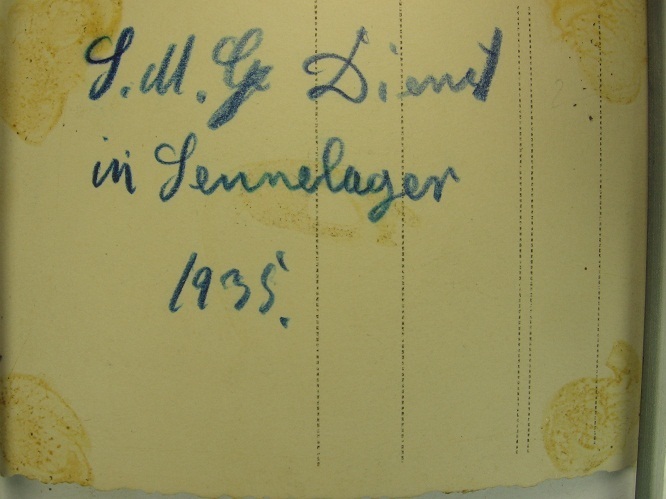 S.M.G. Dienst
in Sennelager
1935.